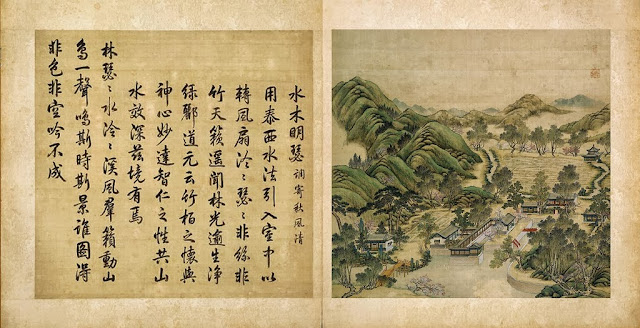 水木明瑟 調寄秋風清
用泰西水法引入室中以
轉風扇泠〻瑟〻非絲非
竹天籟遥聞林光逾生淨
緑酈道元云竹柏之懷與
神心妙達智仁之性共山
水效深茲境有焉
林瑟〻水泠〻溪風羣籟動山
鳥一聲鳴斯時斯景誰圖得
非色非空吟不成